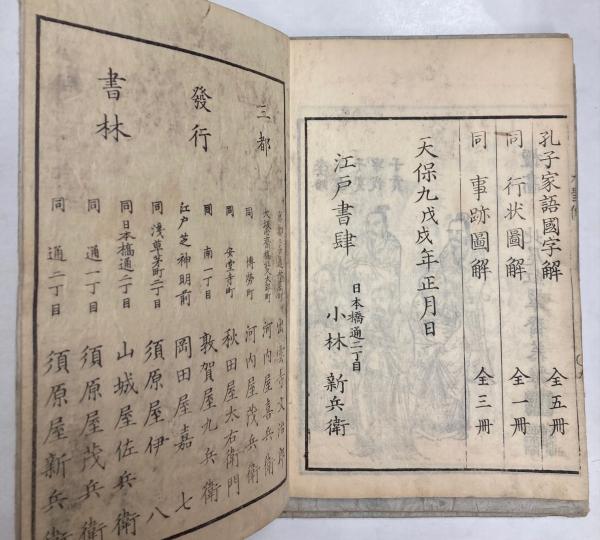 孔子家語國字解 全五冊
同 行状圖解 全一冊
同 事跡圖解 全三冊
天保九戊戌年正月日
江戸書肆 日本橋通二丁目 小林新兵衛
三都
發行
書林
出雲寺文治郎
大坂心斎橋北久太郎町 河内屋喜兵衛
同 博勞町 河内屋茂兵衛
同 安堂寺町 秋田屋太右衛門
同 南一丁目 敦賀屋九兵衛
江戸芝神明前 岡田屋嘉七
同浅草茅町二丁目 須原屋伊八
同日本橋通二丁目 山城屋佐兵衛
同 通一丁目 須原屋茂兵衛
同 通二丁目 須原屋新兵衛